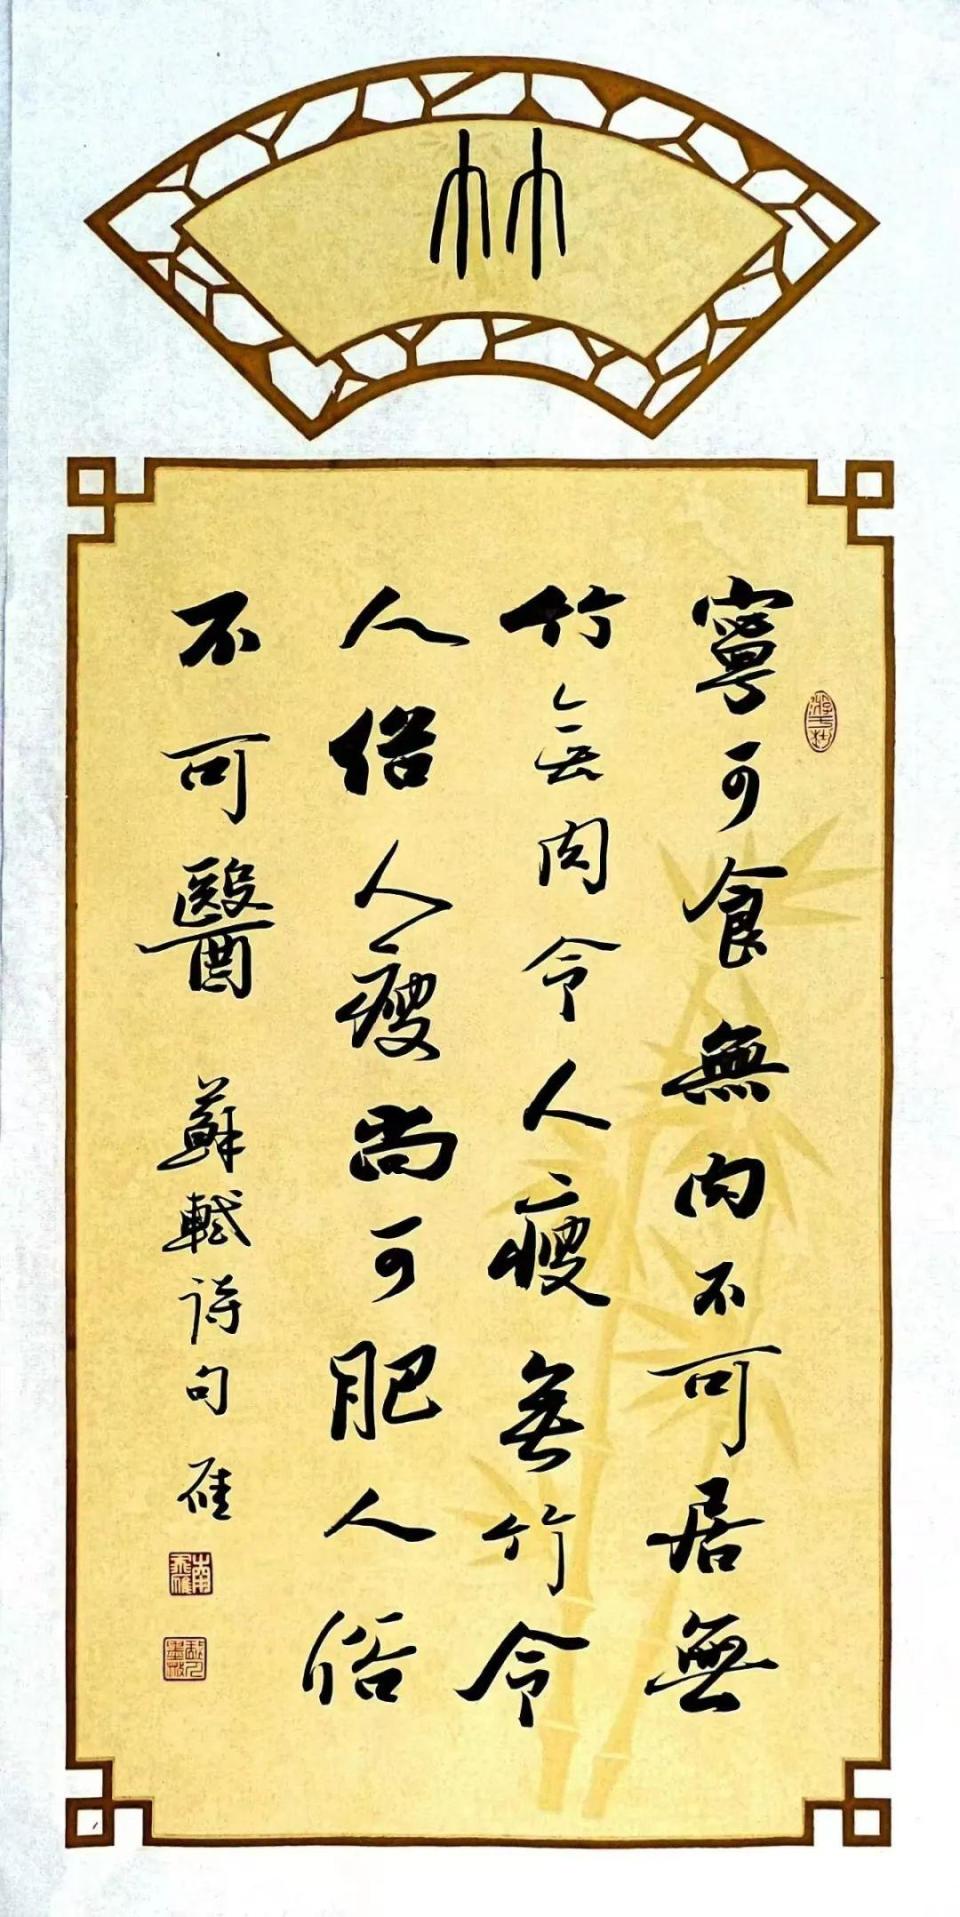 竹
寧可食無肉不可居無
竹無肉令人瘦無竹令
人俗人瘦尚可肥人俗
不可醫 蘇軾詩句 雁